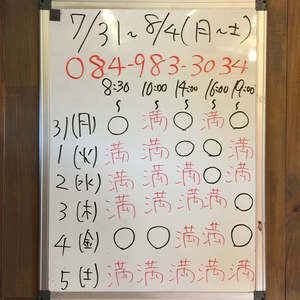 7/31～8/4(月～土)
084-983-3034
8:30 10:00 14:00 16:00 19:00
〜 〜 〜 〜 〜
31(月) ○ 満 ○ 満 ○
1(火) 満 満 ○ ○ 満
2(水) 満 満 ○ ○ 満
3(木) 満 満 満 満 ○
4(金) ○ ○ 満 満 ○
5(土) 満 満 満 満 満